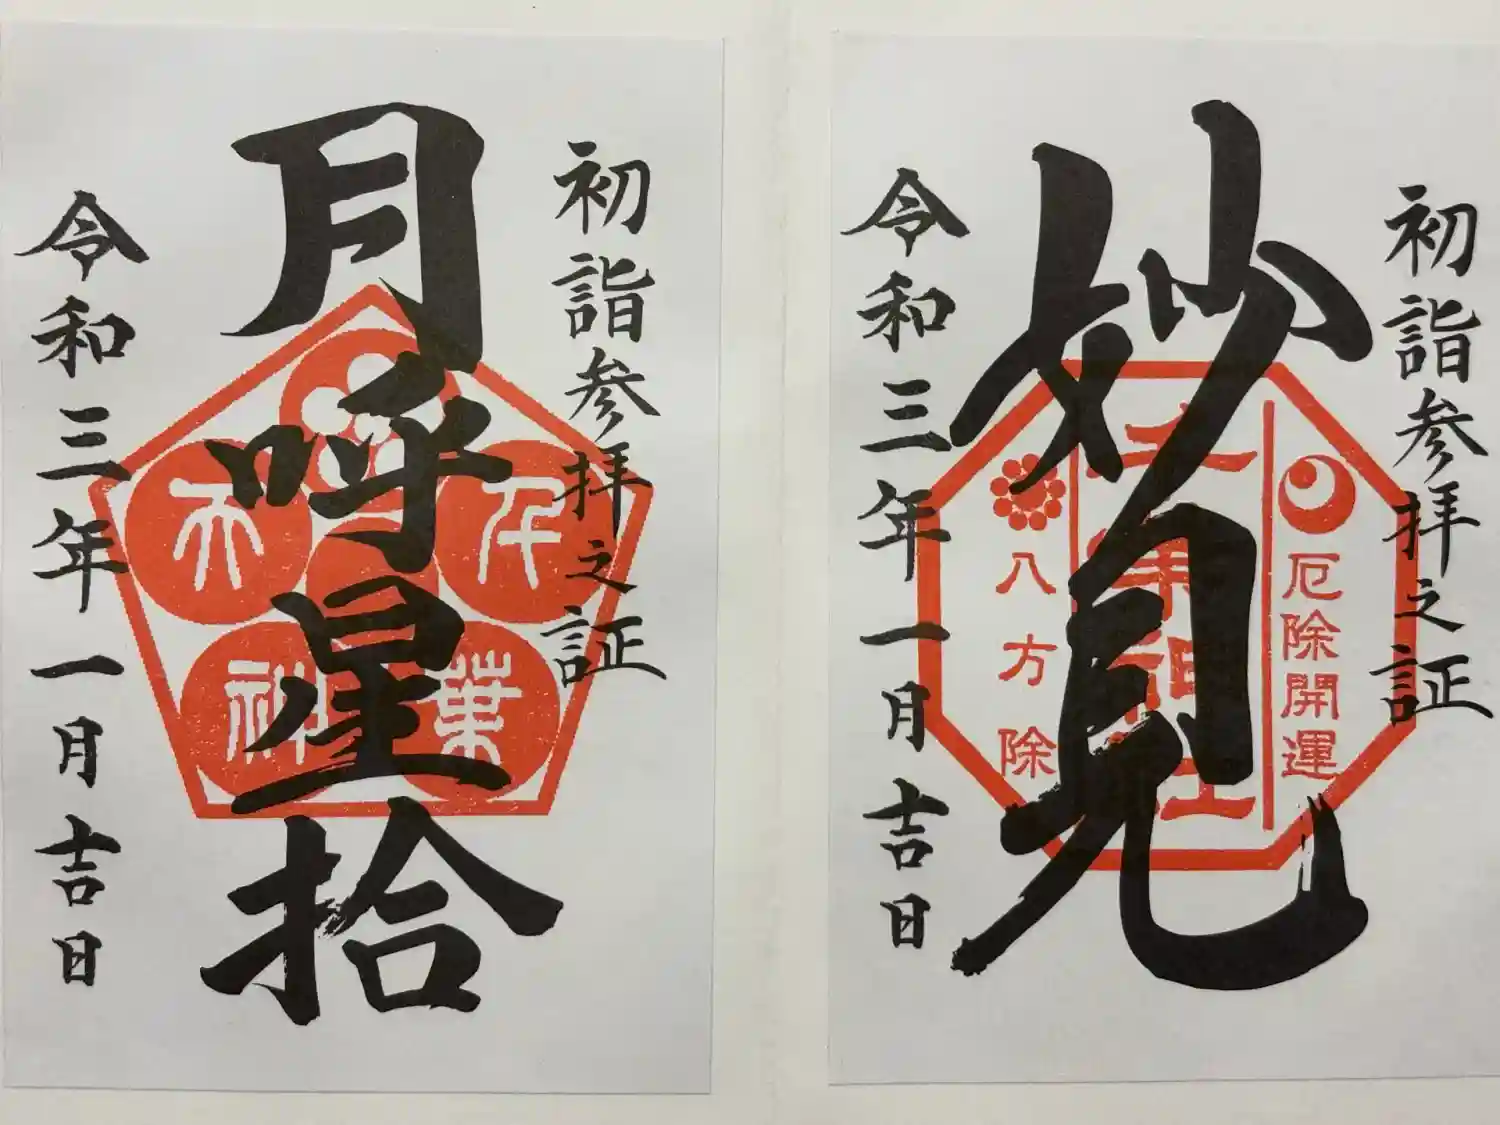 初詣参拝之証
妙見
厄除開運
八方除
令和三年一月吉日
初詣参拝之証
月呼星拾
千葉
天神
令和三年一月吉日